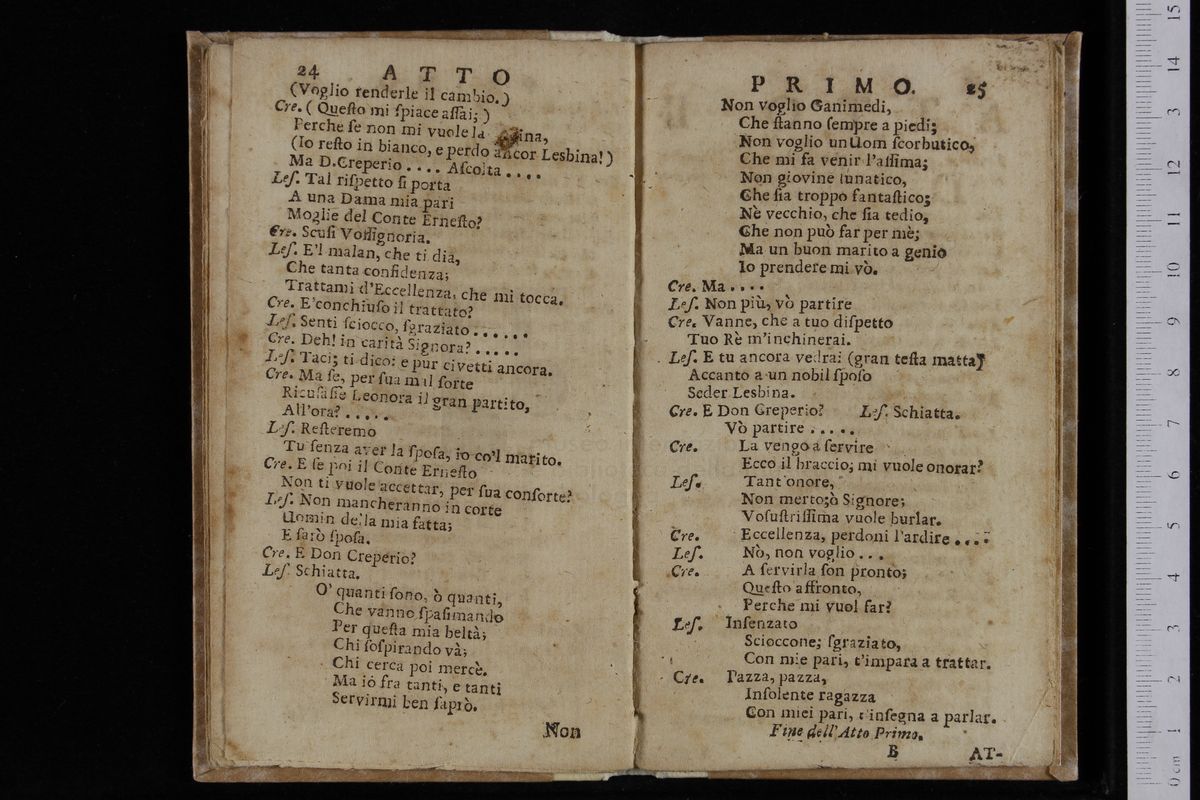 24 ATTO
(Voglio renderle il cambio.)
Cre. ( Queſto mi ſpiace aſſai; )
Perche ſe non mi vuole la
(Io reſto in bianco, e perdo ancor Lesbina! )
Ma D.Creperio .... Aſcolta ....
Leſ. Tal riſpetto ſi porta
A una Dama mia pari
Moglie del Conte Erneſto?
Cre. Scuſi Voſſignoria.
Leſ. E'l malan, che ti dia,
Che tanta confidenza;
Trattami d'Eccellenza, che mi tocca.
Cre. E'conchiuſo il trattato?
Leſ. Senti ſciocco, ſgraziato ......
Cre. Deh! in carità Signora? .....
Leſ. Taci; ti dico: e pur civetti ancora.
Cre. Ma ſe, per ſua mal ſorte
Ricuſaſſe Leonora il gran partito,
All'ora? .....
Leſ. Reſteremo
Tu ſenza aver la ſpoſa, io co'l marito.
Cre. E ſe poi il Conte Erneſto
Non ti vuole accettar, per ſua conſorte?
Leſ. Non mancheranno in corte
Uomin de'la mia fatta;
E ſarò ſpoſa.
Cre. E Don Creperio?
Leſ. Schiatta.
O' quanti ſono, ò quanti,
Che vanno ſpaſimando
Per queſta mia beltà;
Chi ſoſpirando và;
Chi cerca poi mercè.
Ma iò fra tanti, e tanti
Servirmi ben ſaprò.
Non
PRIMO. 25
Non voglio Ganimedi,
Che ſtanno ſempre a piedi;
Non voglio un Uom ſcorbutico,
Che mi fa venir l'aſſima;
Non giovine lunatico,
Che ſia troppo fantaſtico;
Nè vecchio, che ſia tedio,
Che non può far per mè;
Ma un buon marito a genio
Io prendere mi vò.
Cre. Ma ....
Leſ. Non più, vò partire
Cre. Vanne, che a tuo diſpetto
Tuo Rè m'inchinerai.
Leſ. E tu ancora vedrai (gran teſta matta)
Accanto a un nobil ſpoſo
Seder Lesbina.
Cre. E Don Creperio? Leſ. Schiatta.
Vò partire .....
Cre. La vengo a ſervire
Ecco il braccio; mi vuole onorar?
Leſ. Tant'onore,
Non merto;ò Signore;
Voſuſtriſſima vuole burlar.
Cre. Eccellenza, perdoni l'ardire ....
Leſ. Nò, non voglio ...
Cre. A ſervirla ſon pronto;
Queſto affronto,
Perche mi vuol far?
Leſ. Inſenzato
Scioccone; ſgraziato,
Con mie pari, t'impara a trattar.
Cre. Pazza, pazza,
Inſolente ragazza
Con miei pari, t'inſegna a parlar.
Fine dell'Atto Primo.
B AT-